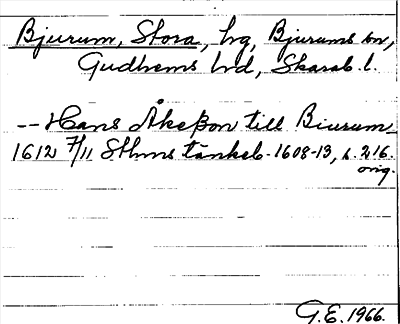 Bjurum, Stora, hg, Bjurums sn,
Gudhems hd, Skarab. l.
-- Hans Åkeßon till Biurum
1612 7/11 Sthms tänkeb. 1608-13, s. 216.
orig.
G.E. 1966.